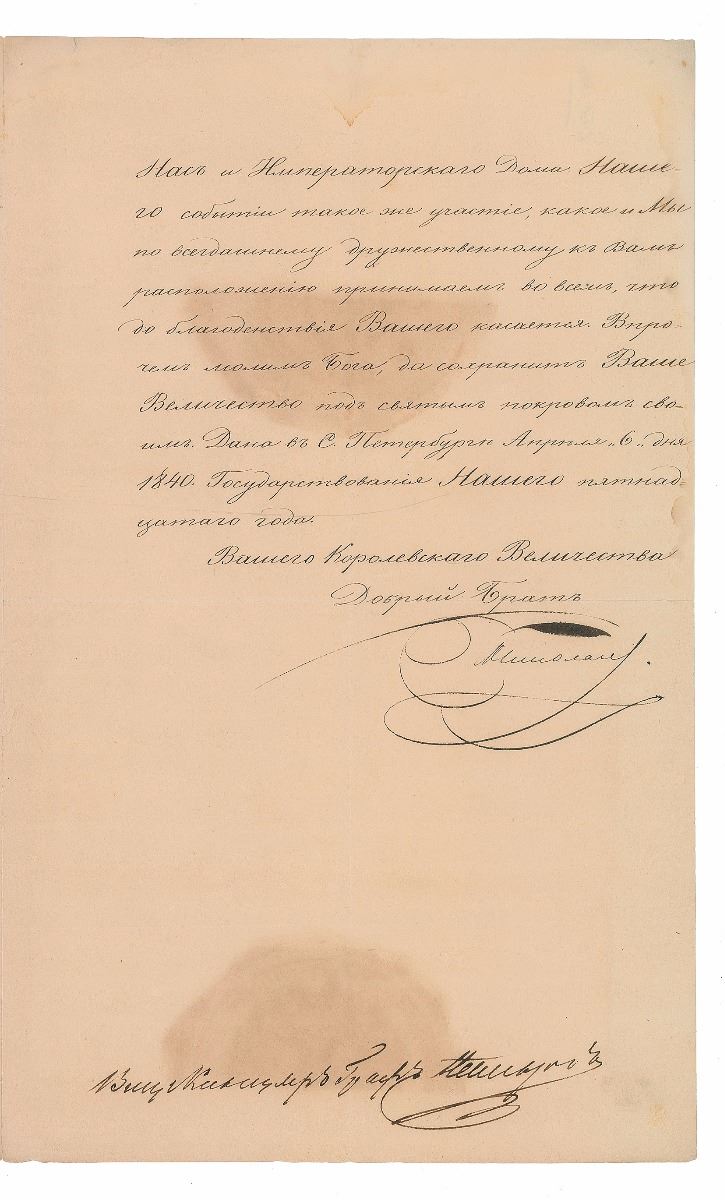 Насъ и Императорскаго Дома Наше-
го событіи такое же участіе, какое и Мы
по всегдашнему дружественному къ Вамъ
расположенію принимаемъ во всемъ, что
до благоденствія Вашего касается. Впро-
чемъ молимъ Бога, да сохранитъ Ваше
Величество подъ святымъ покровомъ сво-
имъ. Дана въ С. Петербургѣ Апрѣля „6„ дня
1840. Государствованія Нашего пятнад-
цатаго года.
Вашего Королевскаго Величества
Добрый Братъ
Николай.
Вице Канцлеръ Графъ Нессельродъ